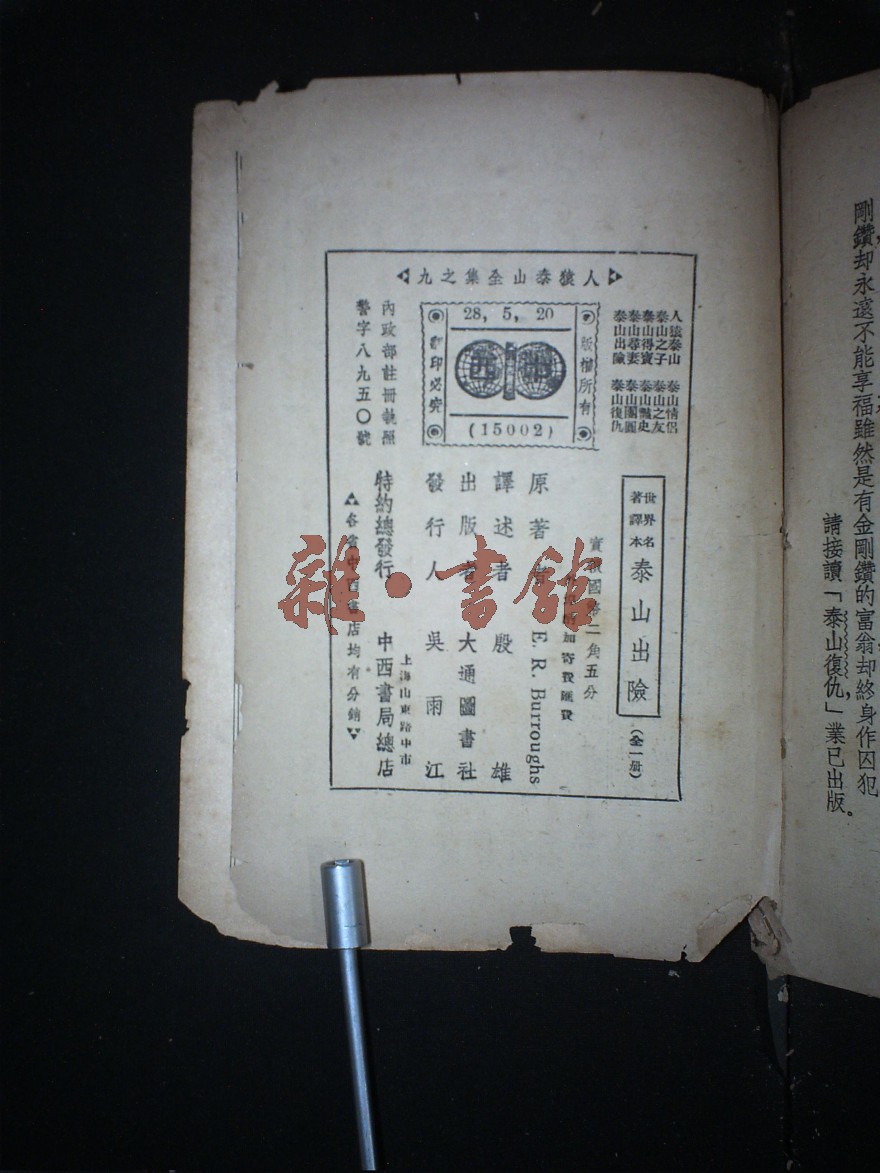 剛鑽却永遠不能享福雖然是有金剛鑽的富翁却終身作囚犯
請接讀「泰山復仇」業已出版。
人猿泰山全集之九
人猿泰山 泰山情侶
泰山之子 泰山之友
泰山得寶 泰山豔史
泰山尋妻 泰山團圓
泰山出險 泰山復仇
版權所有
28, 5, 20
(15002)
翻印必究
內政部註冊執照
警字八九五〇號
世界名
著譯本
泰山出險
(全一册)
實價國幣二角五分
加寄費匯費
原著者 E. R. Burroughs
譯述者 殷雄
出版者 大通圖書社
發行人 吳雨江
上海山東路中市
特約總發行 中西書局總店
各省中西書店均有分銷
雜·書館